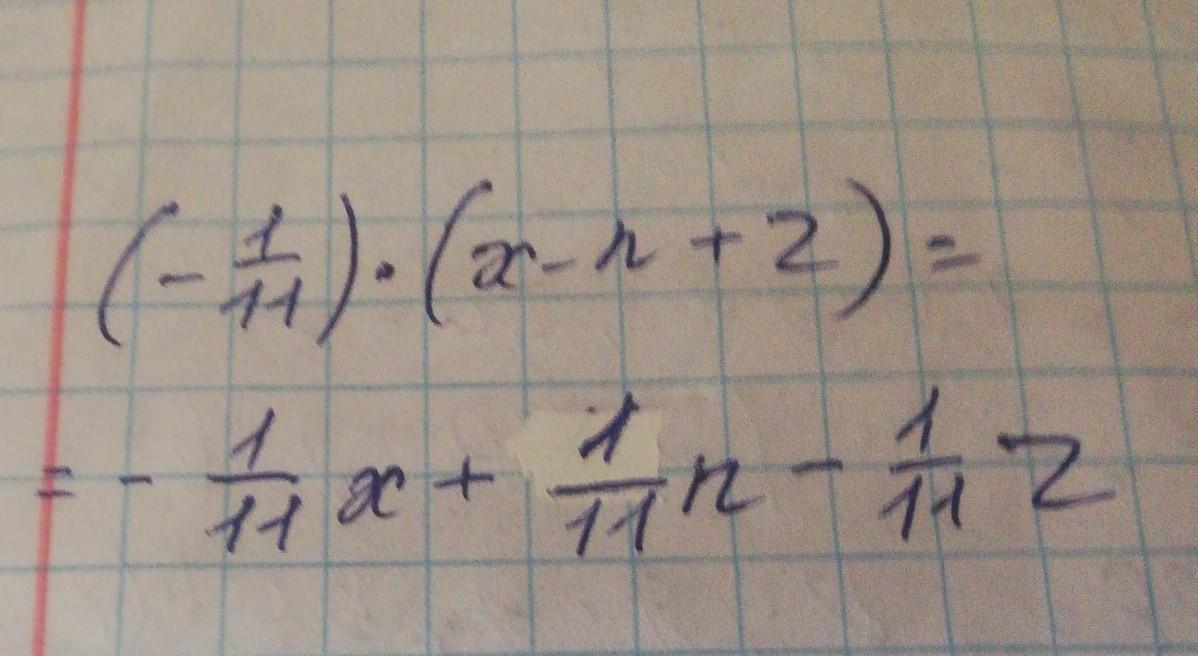 (-1/11)·(x-n+z)=
=-1/11x+1/11n-1/11z